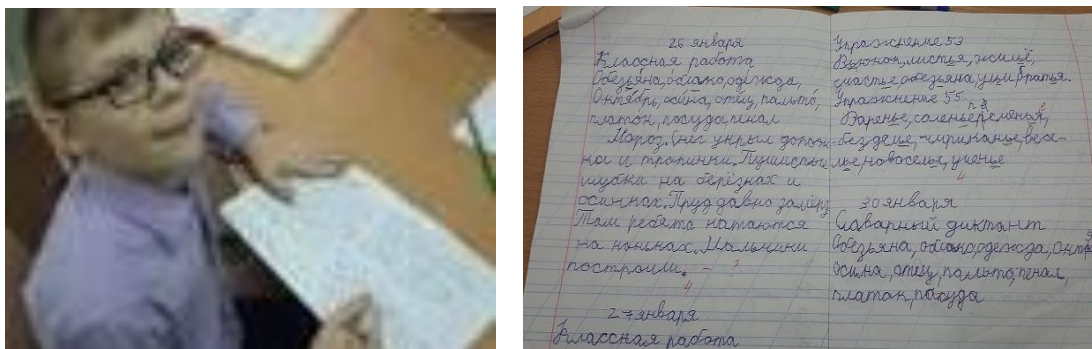 26 января
Классная работа
Обезьяна, облако, одежда,
Октябрь, осина, отец, пальто,
платок, посуда, пенал
Мороз. Снег укрыл дорож-
ки и тропинки. Пушистые
шубки на берёзках и
осинках. Пруд давно замёрз
Там ребята катаются
на коньках. Мальчики
построили. - ?
4
27 января
Классная работа
Упражнение 53
Вьюнок, листья, жильё,
счастье, обезьяна, улы братья.
Упражнение 55
Варенье, соленье,
безделье, чириканье, весе-
лье, новоселье, ученье
4
30 января
Славарный диктант
Обезьяна, облако, одежда,
осина, отец, пальто, пенал,
платок, посуда